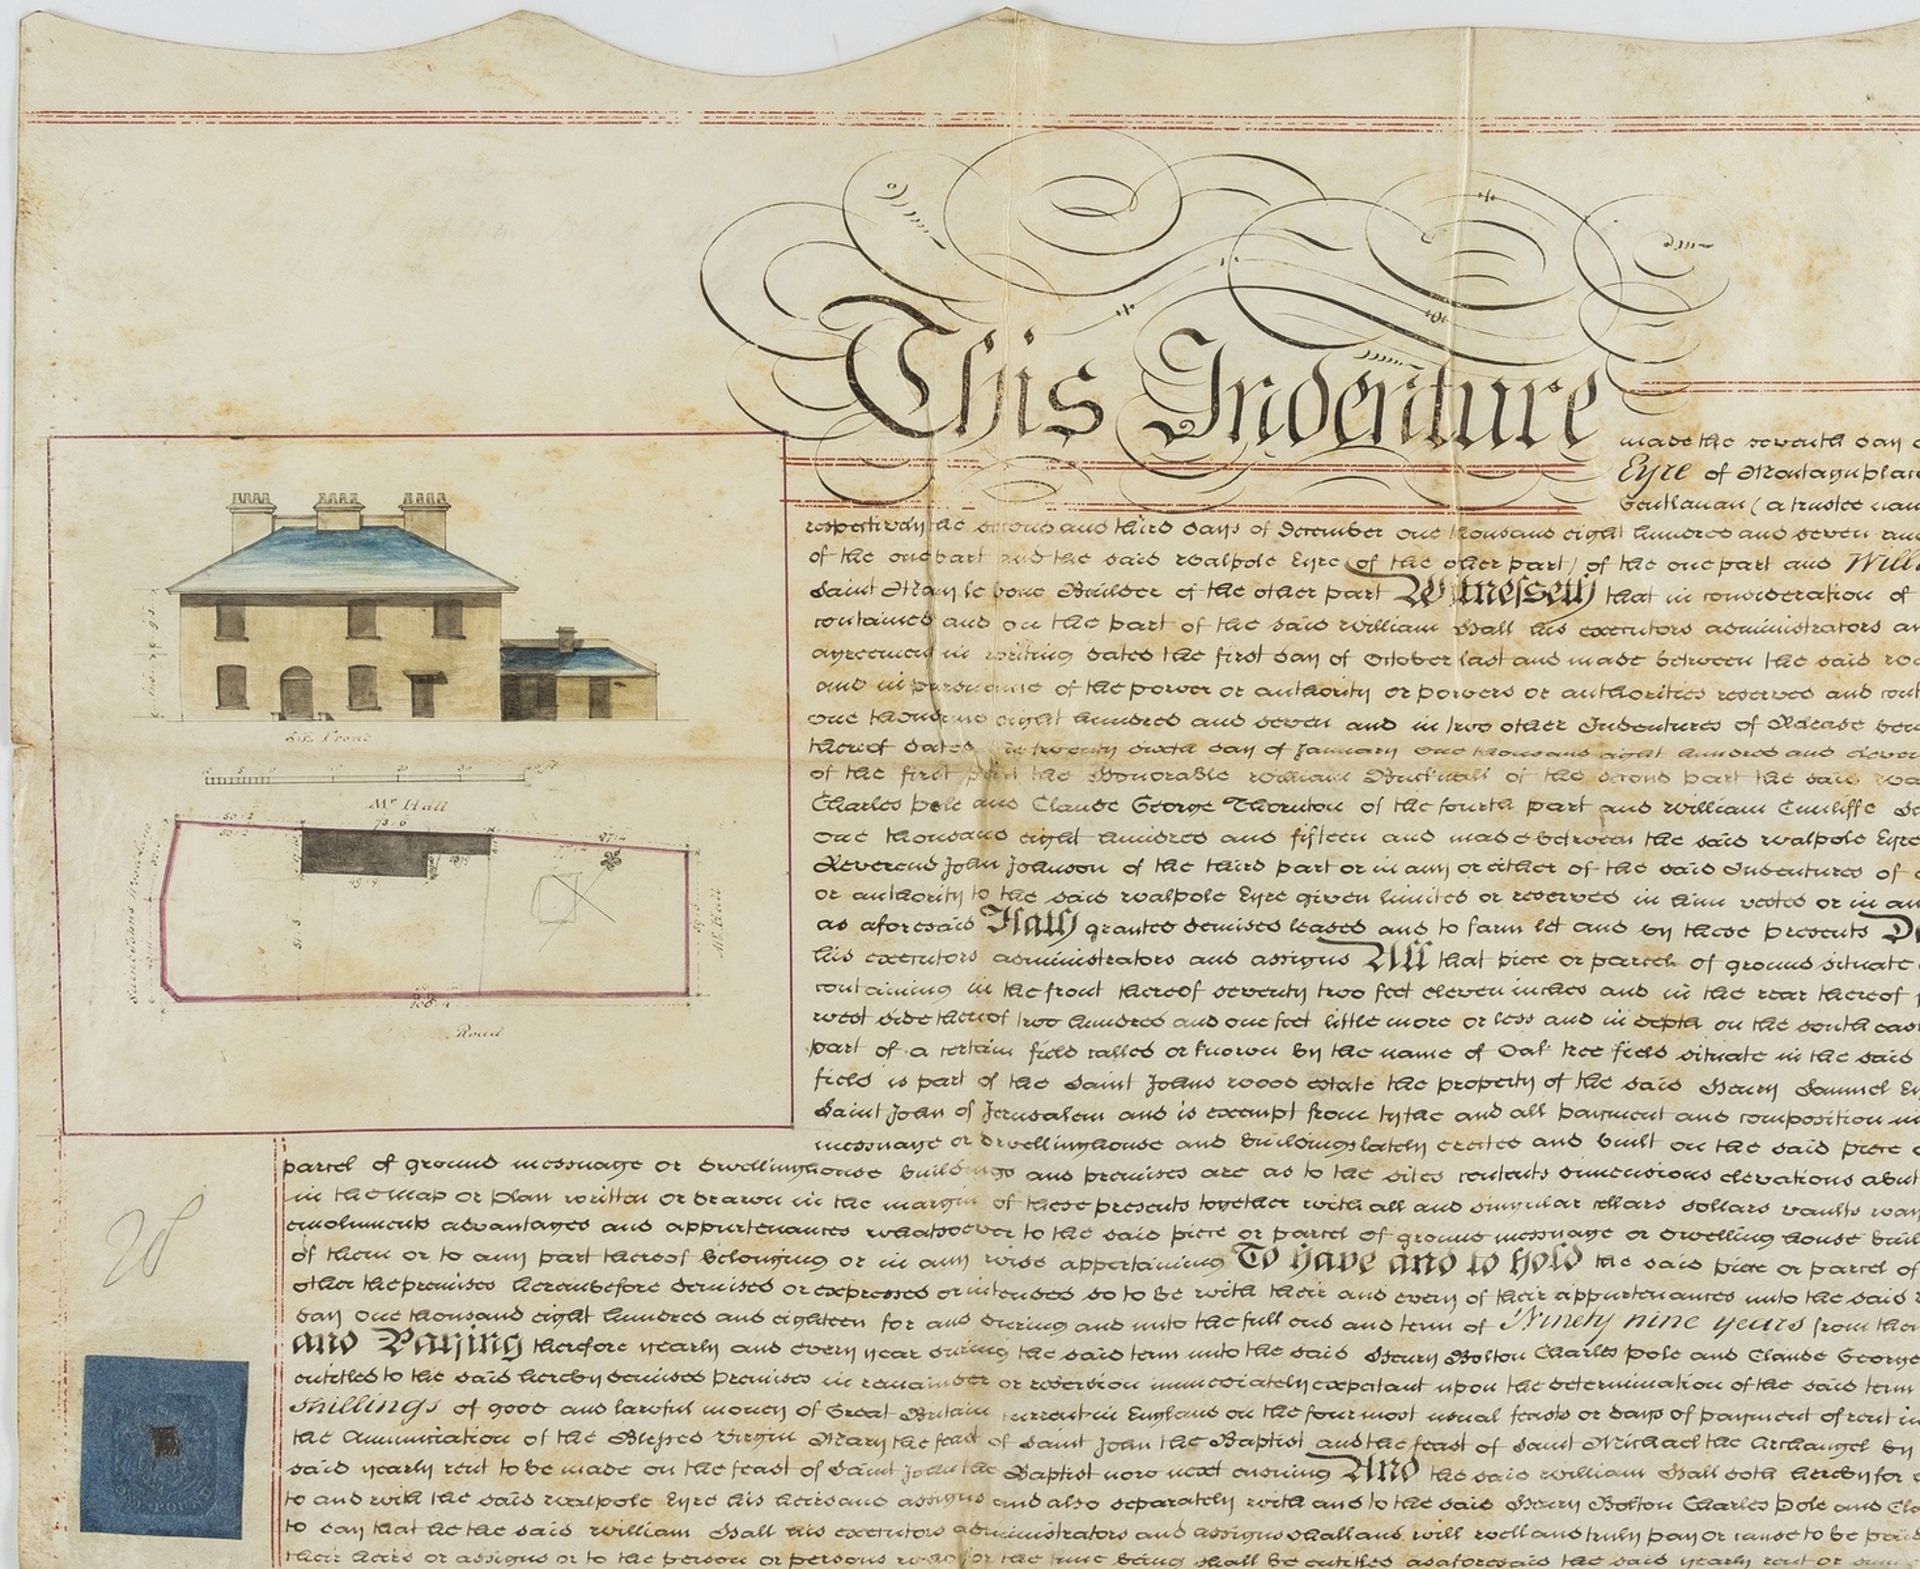 This Indenture
made the seventh day
Eyre of Montagu place
Gentleman (a trustee nam
respectively the second and third days of December one thousand eight hundred and seven and
of the one part and the said Walpole Eyre of the other part) of the one part and Willi
Saint Mary le bone Builder of the other part Witnesseth that in consideration of
contained and on the part of the said William Hall his executors administrators an
agreement in writing dated the first day of October last and made between the said
and in pursuance of the power or authority or powers or authorities reserved and cont
one thousand eight hundred and seven and in two other Indentures of Release
thereof dated the twenty sixth day of January one thousand eight hundred and eleven
of the first part the Honorable William of the second part the said
Charles Pole and Claude George Thornton of the fourth part and William Cunliffe
one thousand eight hundred and fifteen and made between the said Walpole Eyre
Reverend John Johnson of the third part or in any or either of the said Indentures of
or authority to the said Walpole Eyre given limited or reserved in him vested or in an
as aforesaid Hath granted demised leased and to farm let and by these presents
his executors administrators and assigns All that piece or parcel of ground situate
containing in the front thereof seventy two feet eleven inches and in the rear thereof
west side thereof two hundred and one feet little more or less and in depth on the south east
part of a certain field called or known by the name of Oak tree field situate in the said
field is part of the Saint Johns wood estate the property of the said Henry Samuel
Saint John of Jerusalem and is exempt from tythe and all payment and composition in
messuage or dwellinghouse and buildings lately erected and built on the said piece
parcel of ground messuage or dwellinghouse buildings and premises are as to the sites contents dimensions elevations
in the map or plan written or drawn in the margin of these presents together with all and singular cellars sollars vaults
emoluments advantages and appurtenances whatsoever to the said piece or parcel of ground messuage or dwelling house
of them or to any part thereof belonging or in any wise appertaining To have and to hold the said piece or parcel of
other the premises hereinbefore demised or expressed or intended so to be with their and every of their appurtenances unto the said
day one thousand eight hundred and eighteen for and during and unto the full end and term of Ninety nine years from
and Paying therefore yearly and every year during the said term unto the said Henry Bolton Charles Pole and Claude George
entitled to the said hereby demised premises in remainder or reversion immediately expectant upon the determination of the said term
Shillings of good and lawful money of Great Britain current in England on the four most usual feasts or days of payment of rent in
the Annunciation of the Blessed Virgin Mary the feast of Saint John the Baptist and the feast of Saint Michael the Archangel by
said yearly rent to be made on the feast of Saint John the Baptist now next ensuing And the said William Hall doth hereby for
to and with the said Walpole Eyre his heirs and assigns and also separately with and to the said Henry Bolton Charles Pole and
to say that he the said William Hall his executors administrators and assigns shall and will well and truly pay or cause to be paid
their heirs or assigns or to the person or persons who for the time being shall be entitled as aforesaid the said yearly rent or
S.E. Front
Mr. Hall
73..6
Mr. Hall
Road
ONE POUND